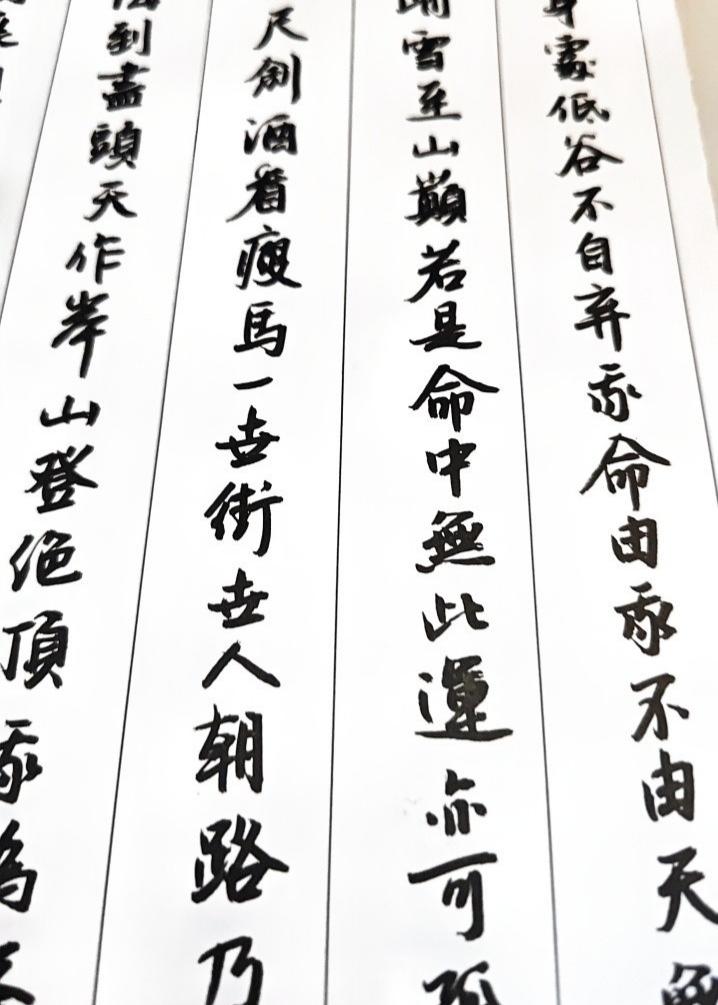 身處低谷不自弃我命由我不由天
踏雪至山巔若是命中無此運亦可孤
尺劍酒看瘦馬一世街世人朝路乃
到盡頭天作岸山登绝頂我為